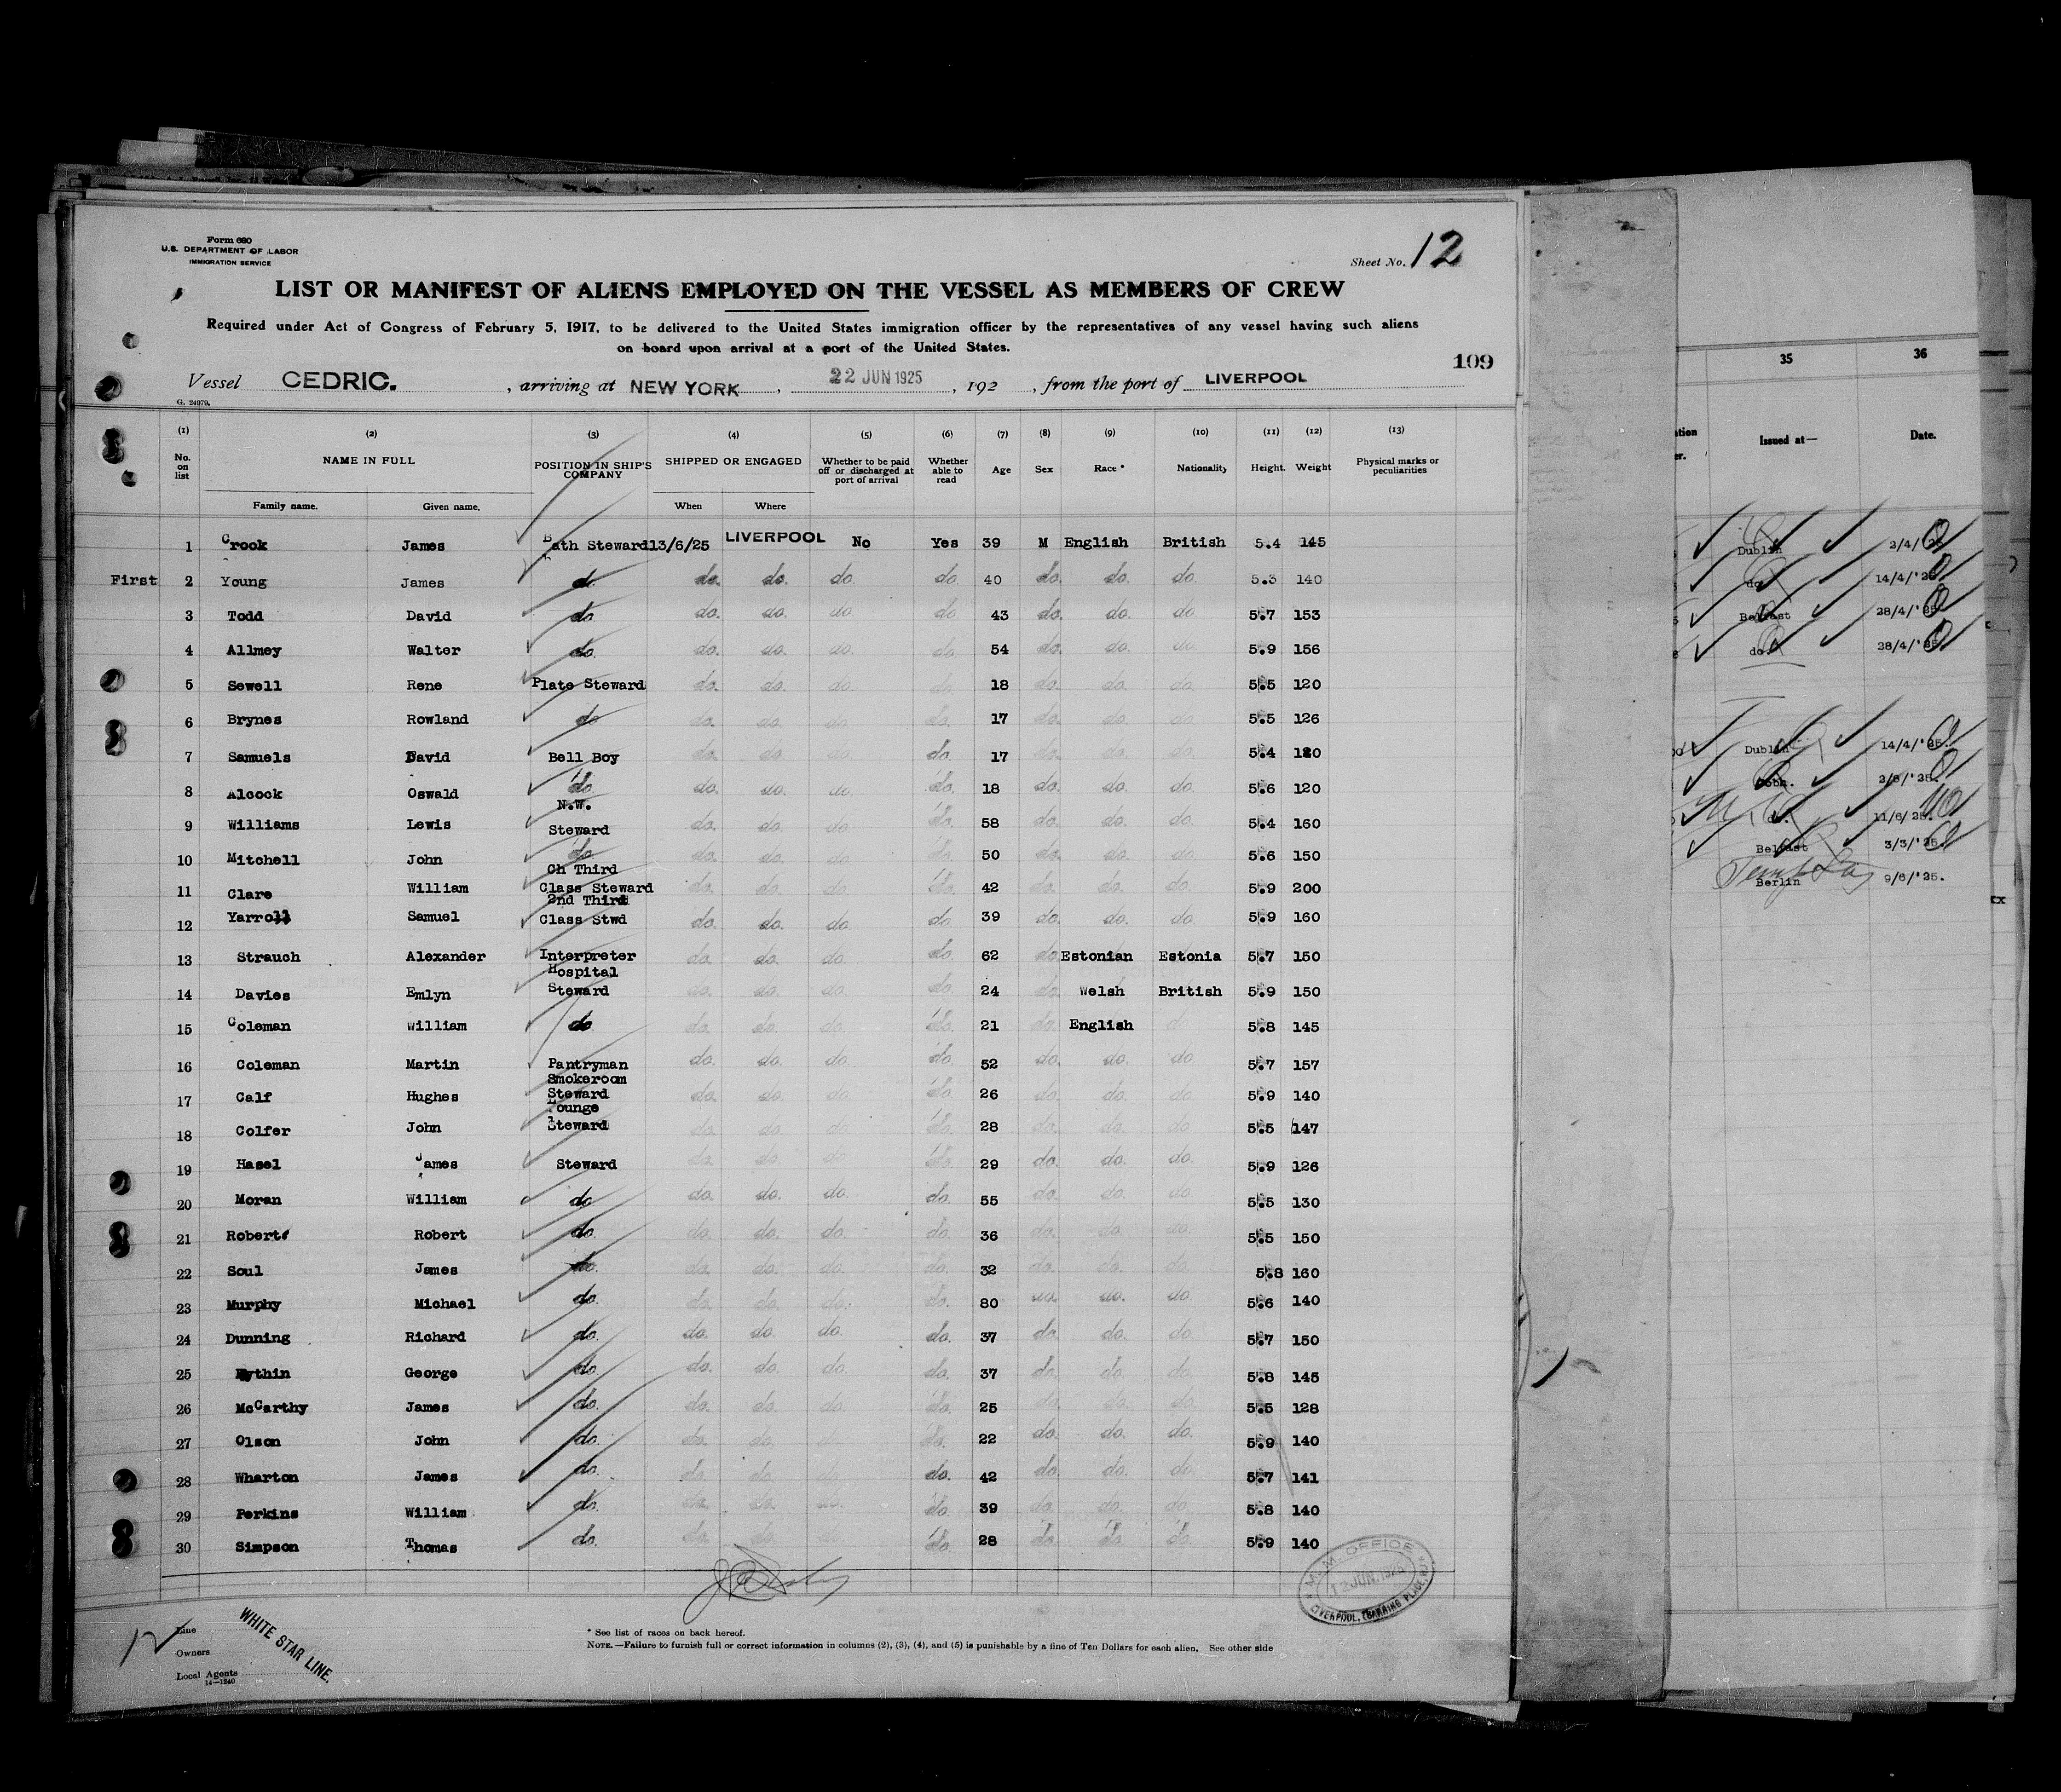 Form 680
U.S. DEPARTMENT OF LABOR
IMMIGRATION SERVICE
Sheet No. 12
LIST OR MANIFEST OF ALIENS EMPLOYED ON THE VESSEL AS MEMBERS OF CREW
Required under Act of Congress of February 5, 1917, to be delivered to the United States immigration officer by the representatives of any vessel having such aliens
on board upon arrival at a port of the United States.
109
Vessel CEDRIC. , arriving at NEW YORK , 22 JUN 1925 , 192 , from the port of LIVERPOOL
G. 24979.
(1) (2) (3) (4) (5) (6) (7) (8) (9) (10) (11) (12) (13)
No. on list NAME IN FULL POSITION IN SHIP'S COMPANY SHIPPED OR ENGAGED Whether to be paid off or discharged at port of arrival Whether able to read Age Sex Race * Nationality Height. Weight Physical marks or peculiarities
Family name. Given name. When Where
1 Crook James Bath Steward 13/6/25 LIVERPOOL No Yes 39 M English British 5.4 145
First 2 Young James do. do. do. do. do. 40 do. do. do. 5.3 140
3 Todd David do. do. do. do. do. 43 do. do. do. 5.7 153
4 Allmey Walter do. do. do. do. do. 54 do. do. do. 5.9 156
5 Sewell Rene Plate Steward do. do. do. do. 18 do. do. do. 5.5 120
6 Brynes Rowland do. do. do. do. do. 17 do. do. do. 5.5 126
7 Samuels David Bell Boy do. do. do. do. 17 do. do. do. 5.4 120
8 Alcock Oswald do. do. do. do. do. 18 do. do. do. 5.6 120
9 Williams Lewis N.W. Steward do. do. do. do. 58 do. do. do. 5.4 160
10 Mitchell John do. do. do. do. do. 50 do. do. do. 5.6 150
11 Clare William Ch Third Class Steward do. do. do. do. 42 do. do. do. 5.9 200
12 Yarroll Samuel 2nd Third Class Stwd do. do. do. do. 39 do. do. do. 5.9 160
13 Strauch Alexander Interpreter do. do. do. do. 62 do. Estonian Estonia 5.7 150
14 Davies Emlyn Hospital Steward do. do. do. do. 24 do. Welsh British 5.9 150
15 Coleman William do. do. do. do. do. 21 do. English d 5.8 145
16 Coleman Martin Pantryman do. do. do. do. 52 do. do. do 5.7 157
17 Calf Hughes Smokeroom Steward do. do. do. do. 26 do. do. do. 5.9 140
18 Colfer John Lounge Steward do. do. do. do. 28 do. do. do. 5.5 147
19 Hasel James Steward do. do. do. do. 29 do. do. do. 5.9 126
20 Moran William do. do. do. do. do. 55 do. do. do. 5.5 130
21 Roberts Robert do. do. do. do. do. 36 do. do. do. 5.5 150
22 Soul James do. do. do. do. do. 32 do. do. do. 5.8 160
23 Murphy Michael do. do. do. do. do. 80 do. do. do. 5.6 140
24 Dunning Richard do. do. do. do. do. 37 do. do. do. 5.7 150
25 ythin George do. do. do. do. do. 37 do. do. do. 5.8 145
26 McCarthy James do. do. do. do. do. 25 do. do. do. 5.5 128
27 Olson John do. do. do. do. do. 22 do. do. do. 5.9 140
28 Wharton James do. do. do. do. do. 42 do. do. do. 5.7 141
29 Perkins William do. do. do. do. do. 39 do. do. do. 5.8 140
30 Simpson Thomas do. do. do. do. do. 28 do. do. do. 5.9 140
I.M.M. OFFICE
12 JUN. 1925
LIVERPOOL, (CANNING PLACE)
12
Line
Owners
Local Agents
14—1240
WHITE STAR LINE.
* See list of races on back hereof.
NOTE.—Failure to furnish full or correct information in columns (2), (3), (4), and (5) is punishable by a fine of Ten Dollars for each alien. See other side
35 36
Issued at— Date.
Dublin 2/4/'25
do. 14/4/'25
Belfast 28/4/'25
do. 28/4/'25
Dublin 14/4/'25.
Cobh. 2/6/'25.
do. 11/6/25.
Belfast 3/3/'25.
Berlin 9/6/'25.